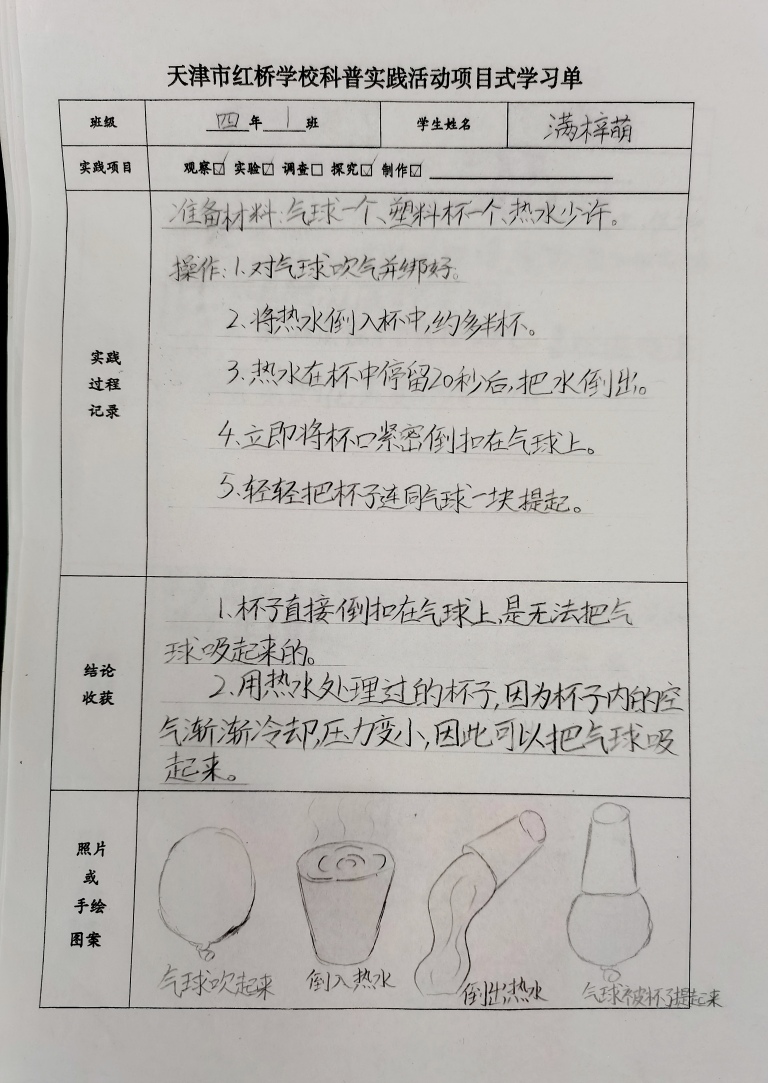 天津市红桥学校科普实践活动项目式学习单
班级 四年1班 学生姓名 满梓萌
实践项目 观察☑ 实验☑ 调查□ 探究☑ 制作☑
实践
过程
记录
准备材料:气球一个、塑料杯一个、热水少许。
操作:1.对气球吹气并绑好。
2、将热水倒入杯中,约多半杯。
3、热水在杯中停留20秒后,把水倒出。
4、立即将杯口紧密倒扣在气球上。
5、轻轻把杯子连同气球一块提起。
结论
收获
1.杯子直接倒扣在气球上,是无法把气
球吸起来的。
2、用热水处理过的杯子,因为杯子内的空
气渐渐冷却,压力变小,因此可以把气球吸
起来。
照片
或
手绘
图案
气球吹起来 倒入热水 倒出热水 气球被杯子提起来